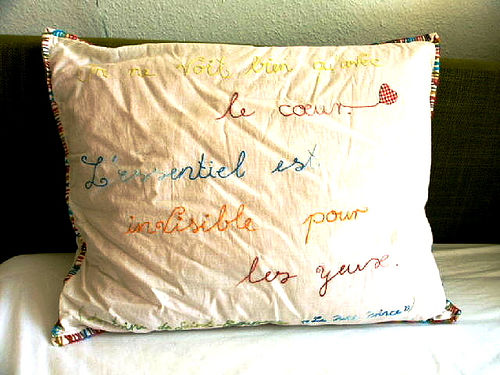 On ne voit bien qu'avec
le cœur.
L'essentiel est
invisible pour
les yeux.
"Le Petit Prince"